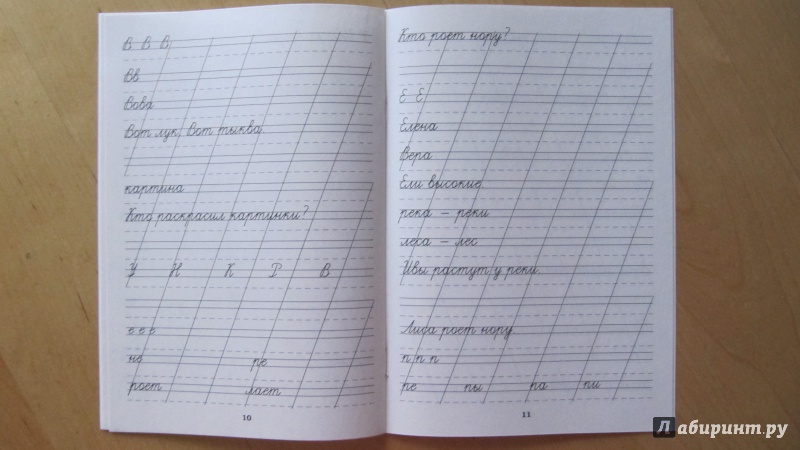 В В В
Вв
Вова
Вот лук. Вот тыква.
картина
Кто раскрасил картинки?
У Н К Р В
е е е
не ре
роет лает
10
Кто роет нору?
Е Е
Елена
Вера
Ели высокие.
река – реки
леса – лес
Ивы растут у реки.
Лиса роет нору.
п п п
ре пы ра пи
11
Лабиринт.ру